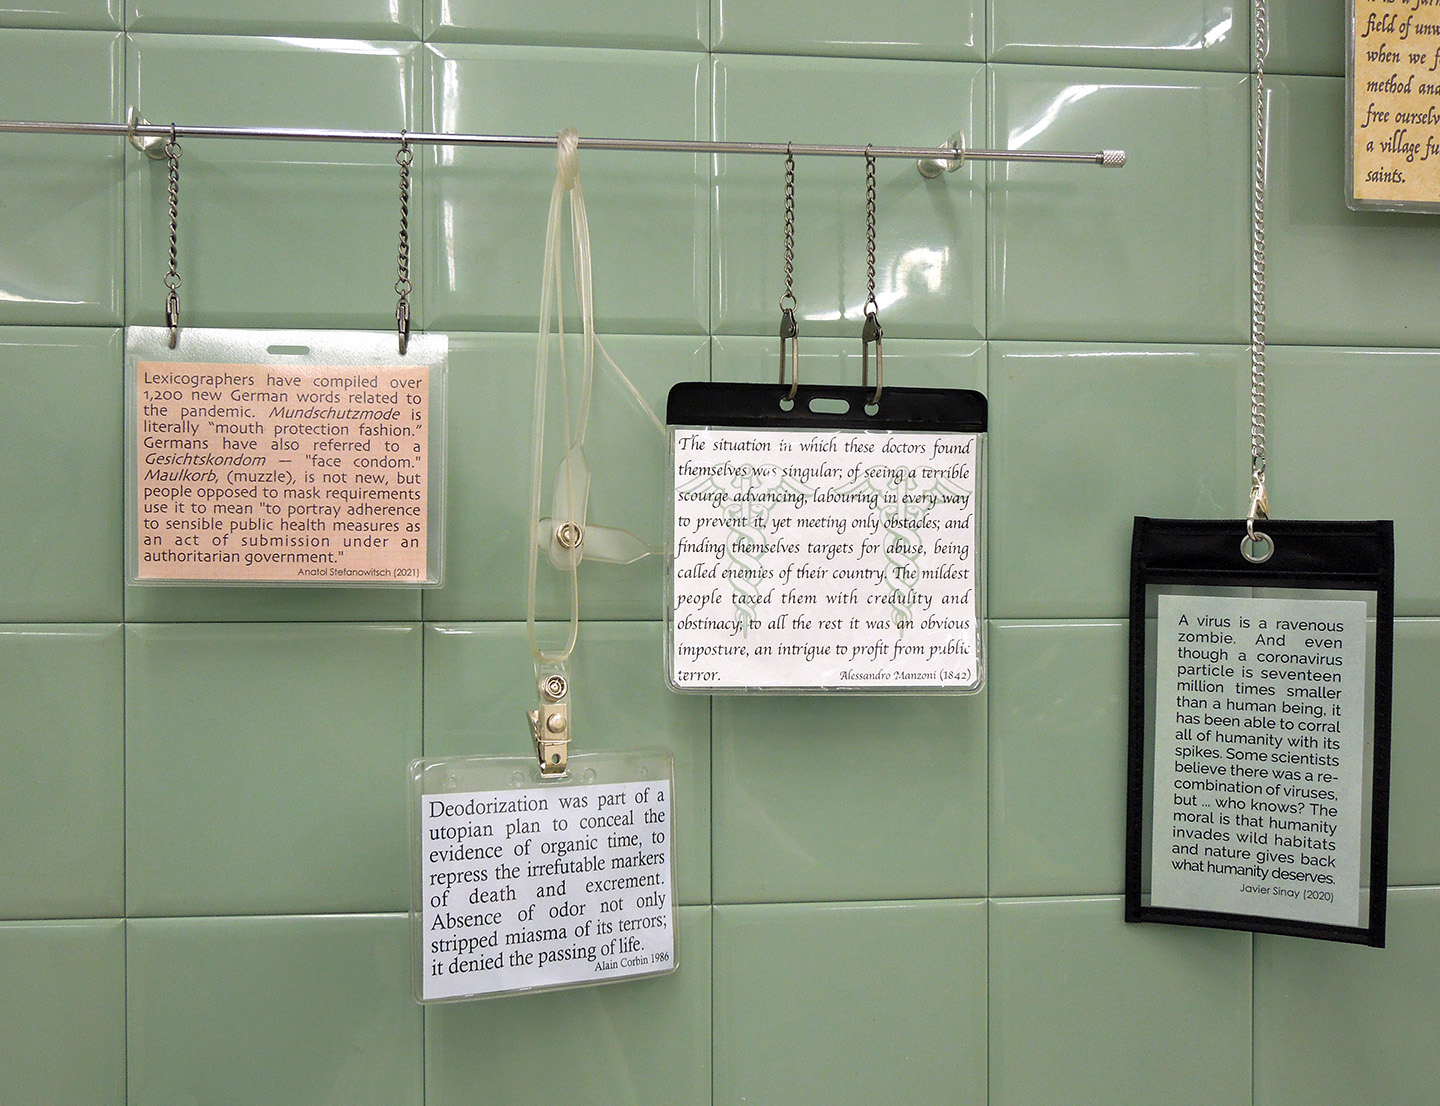 Lexicographers have compiled over
1,200 new German words related to
the pandemic. Mundschutzmode is
literally "mouth protection fashion."
Germans have also referred to a
Gesichtskondom — "face condom."
Maulkorb, (muzzle), is not new, but
people opposed to mask requirements
use it to mean "to portray adherence
to sensible public health measures as
an act of submission under an
authoritarian government."
Anatol Stefanowitsch (2021)
Deodorization was part of a
utopian plan to conceal the
evidence of organic time, to
repress the irrefutable markers
of death and excrement.
Absence of odor not only
stripped miasma of its terrors;
it denied the passing of life.
Alain Corbin 1986
The situation in which these doctors found
themselves was singular; of seeing a terrible
scourge advancing, labouring in every way
to prevent it, yet meeting only obstacles; and
finding themselves targets for abuse, being
called enemies of their country. The mildest
people taxed them with credulity and
obstinacy; to all the rest it was an obvious
imposture, an intrigue to profit from public
terror.
Alessandro Manzoni (1842)
A virus is a ravenous
zombie. And even
though a coronavirus
particle is seventeen
million times smaller
than a human being, it
has been able to corral
all of humanity with its
spikes. Some scientists
believe there was a re-
combination of viruses,
but ... who knows? The
moral is that humanity
invades wild habitats
and nature gives back
what humanity deserves.
Javier Sinay (2020)
field of
when we
method
free
a village
saints.